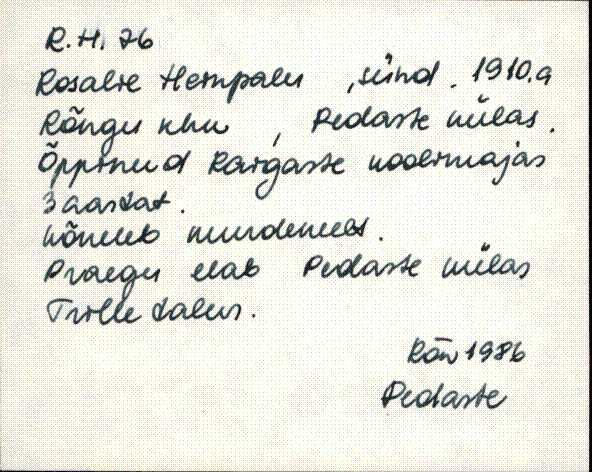 R.H. 76
Rosalie Hempalu, sünd. 1910.a
Rõngu khn, Pedaste külas.
Õppinud Kargaste koolimajas
3 aastat.
Kõneleb murdekeelt.
Praegu elab Pedaste külas
Trolle talus.
Rõn 1986
Pedaste